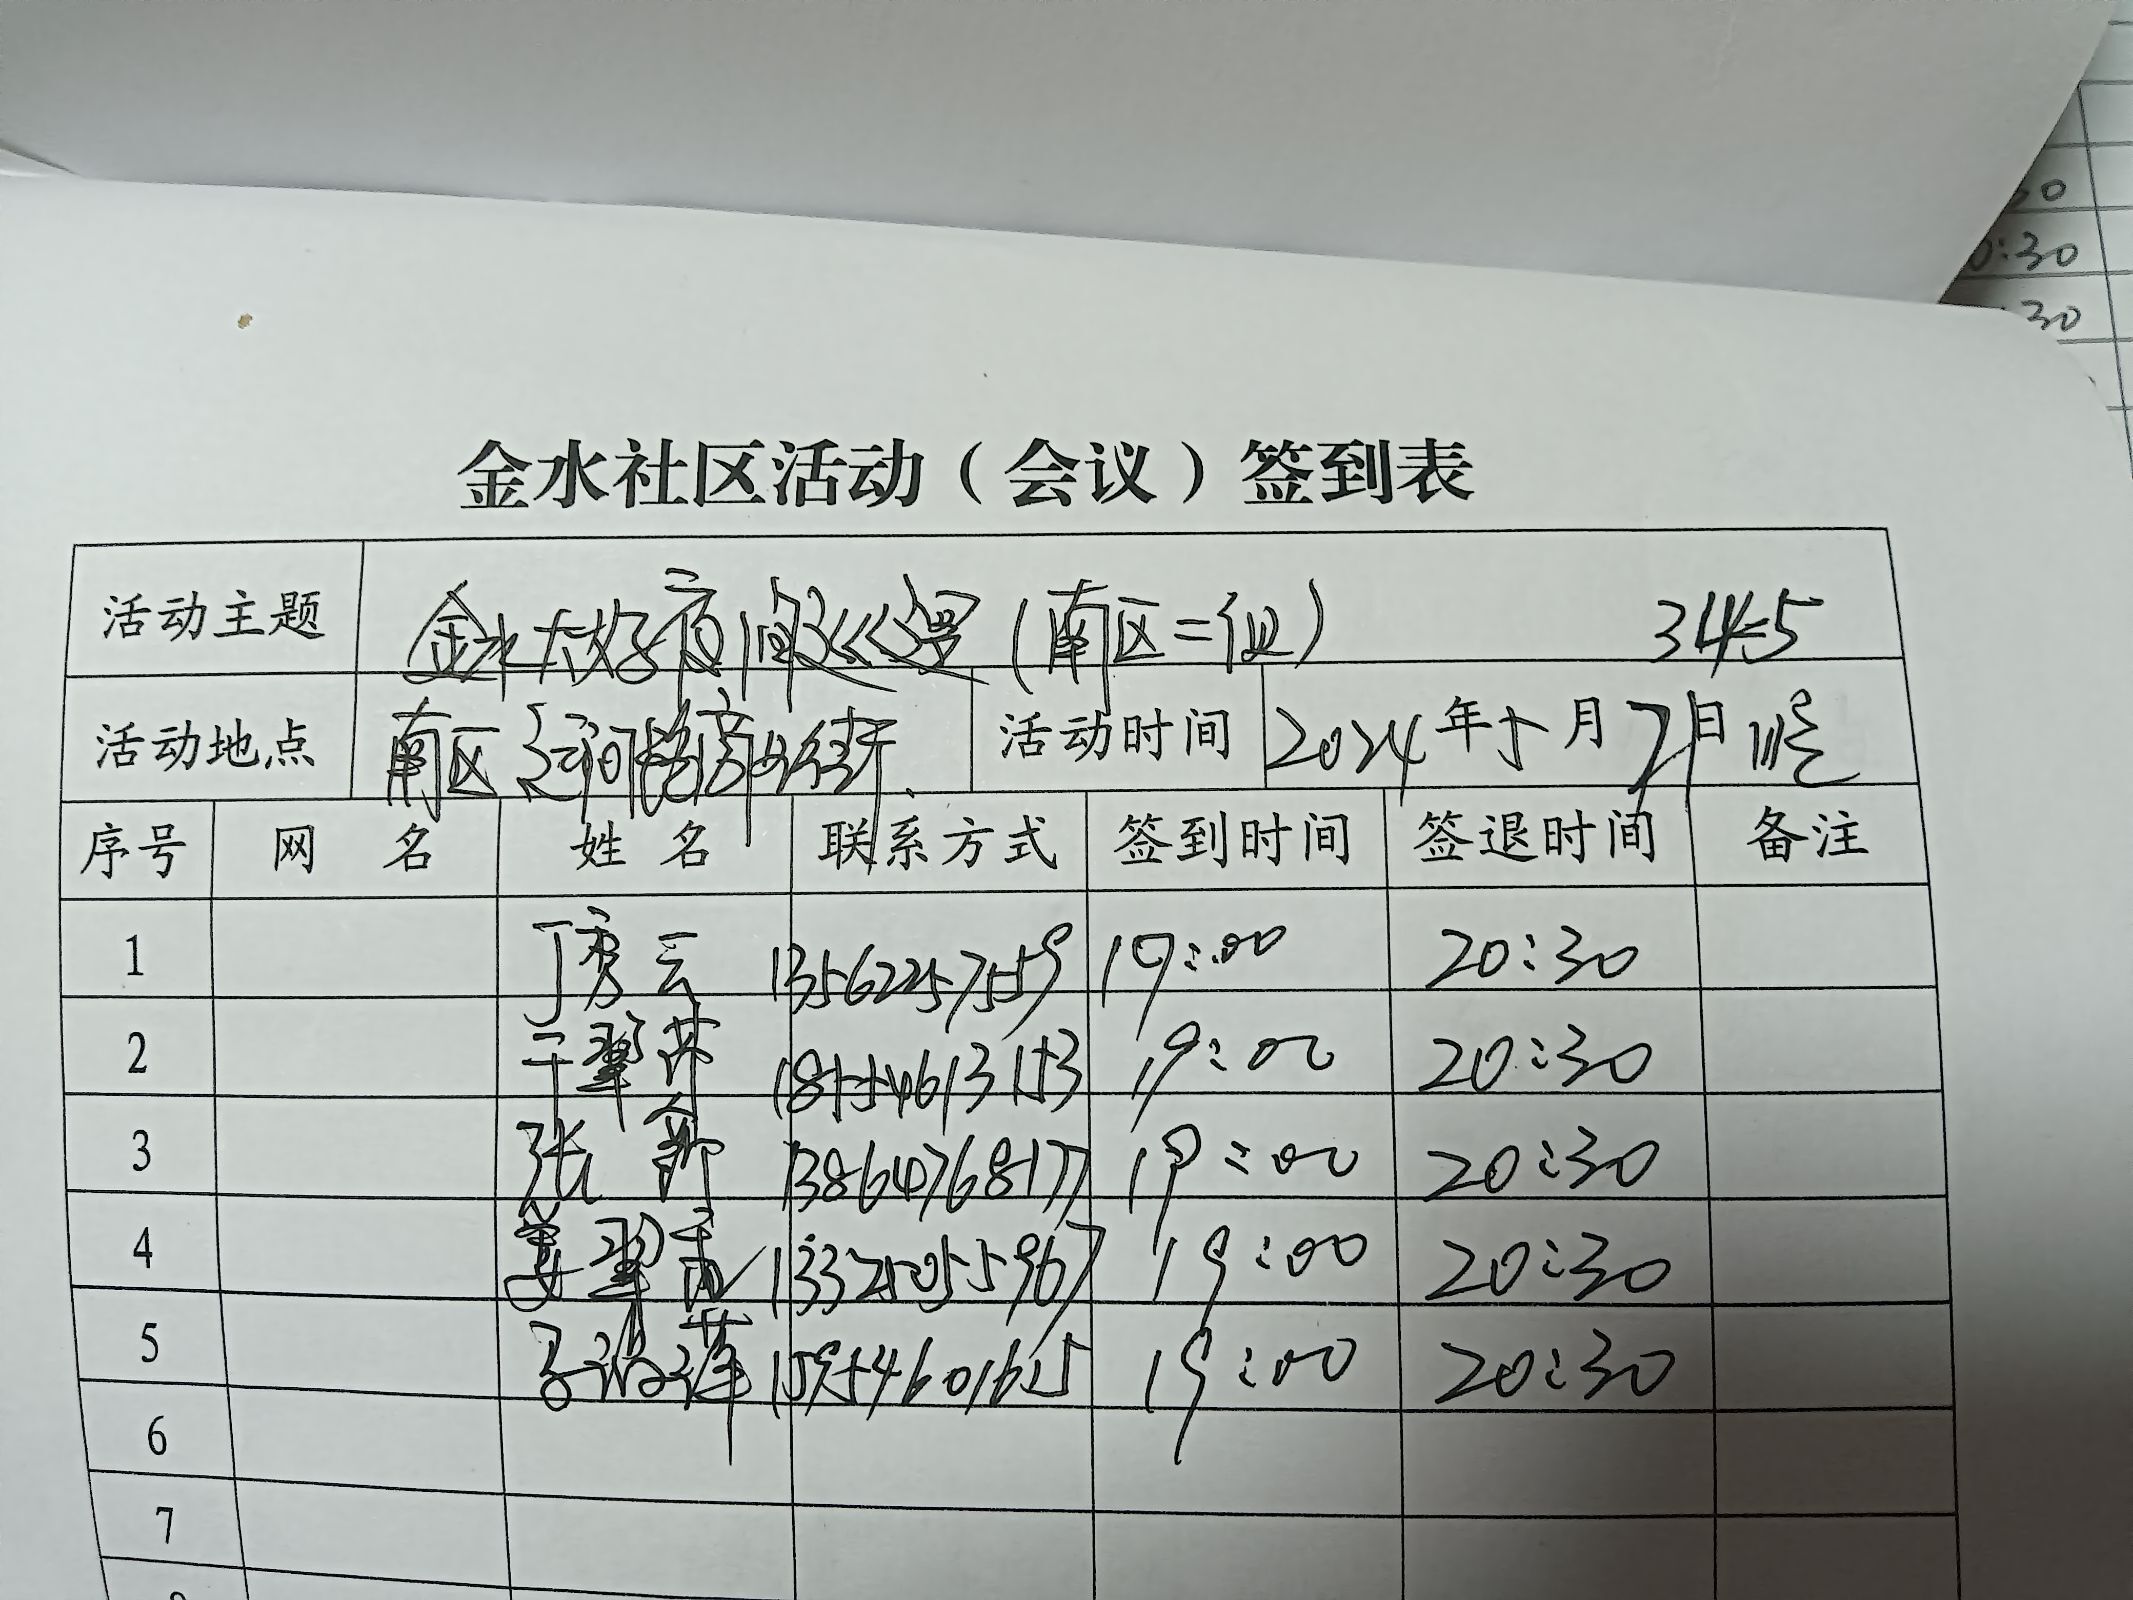 30
0:30
:30
金水社区活动（会议）签到表
活动主题 金水大好夜间巡逻（南区二组）
活动地点 南区运河 街 活动时间 2024年5月7日
序号 网名 姓名 联系方式 签到时间 签退时间 备注
1 丁秀云 13562257559 19:00 20:30
2 于翠萍 18554613153 19:00 20:30
3 张 13864768177 19:00 20:30
4 姜翠香 13325055967 19:00 20:30
5 15954601615 19:00 20:30
6
7